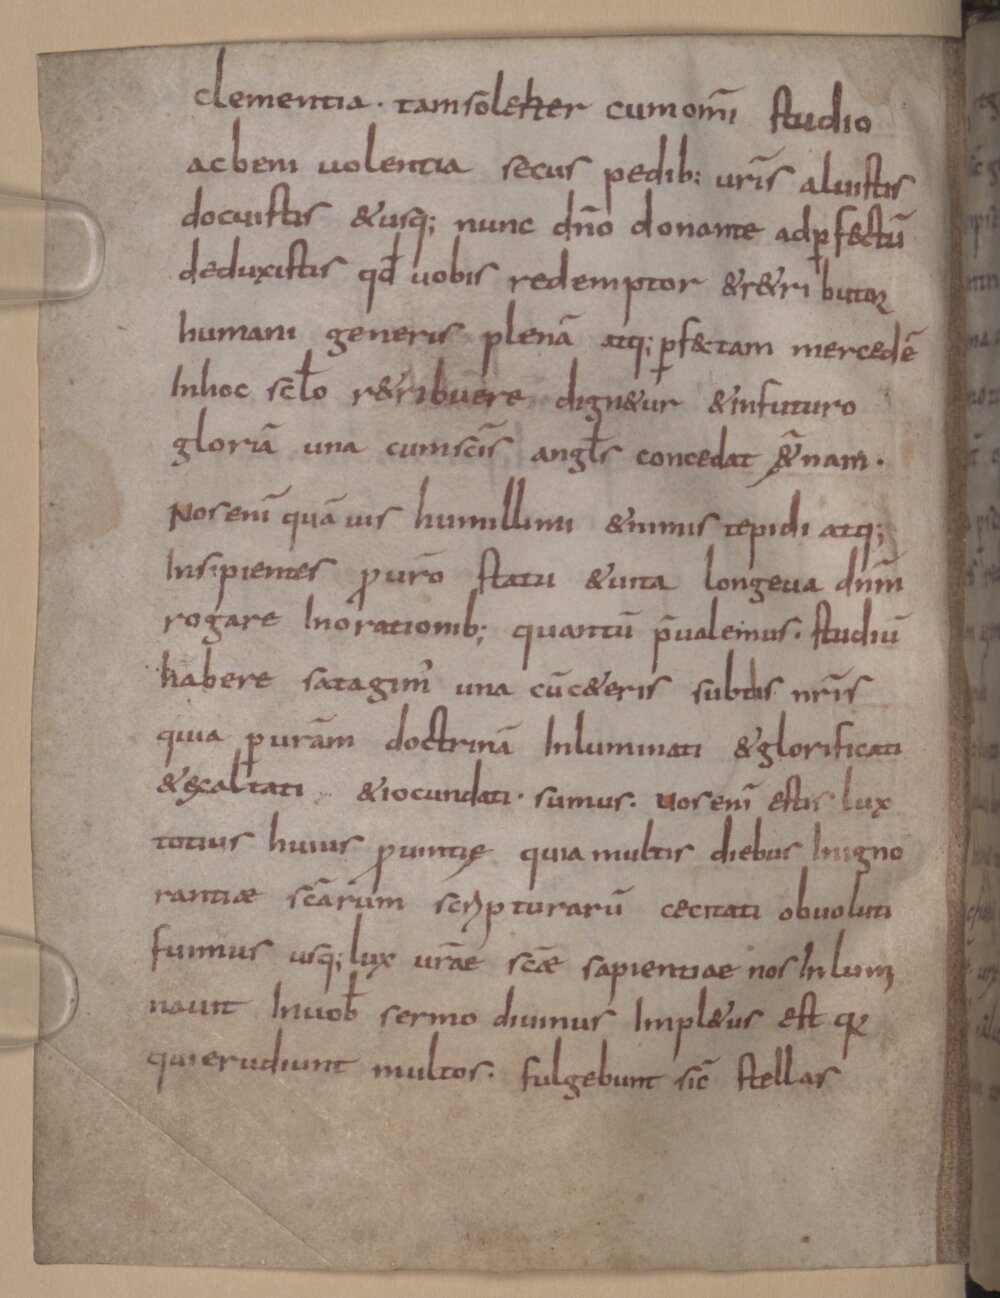 clementia · tam sollerter cum om̄i studio
ac beni uolentia secus pedib: ur̄is aluistis
docuistis &usq; nunc dn̄o donante ad ꝑf&ctū
deduxistis qđ uobis redemptor &r&ributor
humani generis plenā atq; ꝑf&ctam mercedē
In hoc sc̄lo r&ribuere dign&ur &in futuro
gloriā una cum sc̄is angl̄s concedat &̄nam ·
Nos eni̅ quāuis humillimi &nimis tepidi atq;
Insipientes ꝓ ur̄o statu &uita longeua dn̄m
rogare In orationib; quantū p̄ualemus · studiū
habere satagim᾽ una cū c&eris subtis nr̄is
quia ꝑ ur̄am doctrinā Inluminati &glorificati
&exaltati &iocundati · sumus · Uos eni̅ estis lux
totius huius ꝓuintię quia multis diebus In igno
rantiae sc̄arum scripturarū cecitati obuoluti
fuimus usq; lux ur̄ae sc̄ae sapientiae nos Inlumi
nauit In uob̄ sermo diuinus Impl&us est qr
qui erudiunt multos · fulgebunt sic̄ stellas